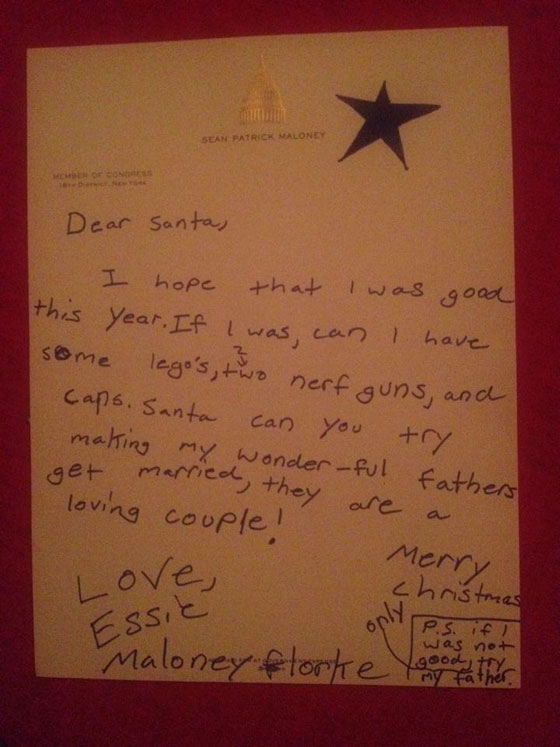 SEAN PATRICK MALONEY
MEMBER OF CONGRESS
18TH DISTRICT, NEW YORK
Dear Santa,
I hope that I was good
this year. If I was, can I have
2
some lego's, two nerf guns, and
caps. Santa can you try
making my wonder-ful fathers
get married, they are a
loving couple!
Love,
Essie
Maloney Florke
Merry
Christmas
only
P.S. if I
was not
good, try
my father.